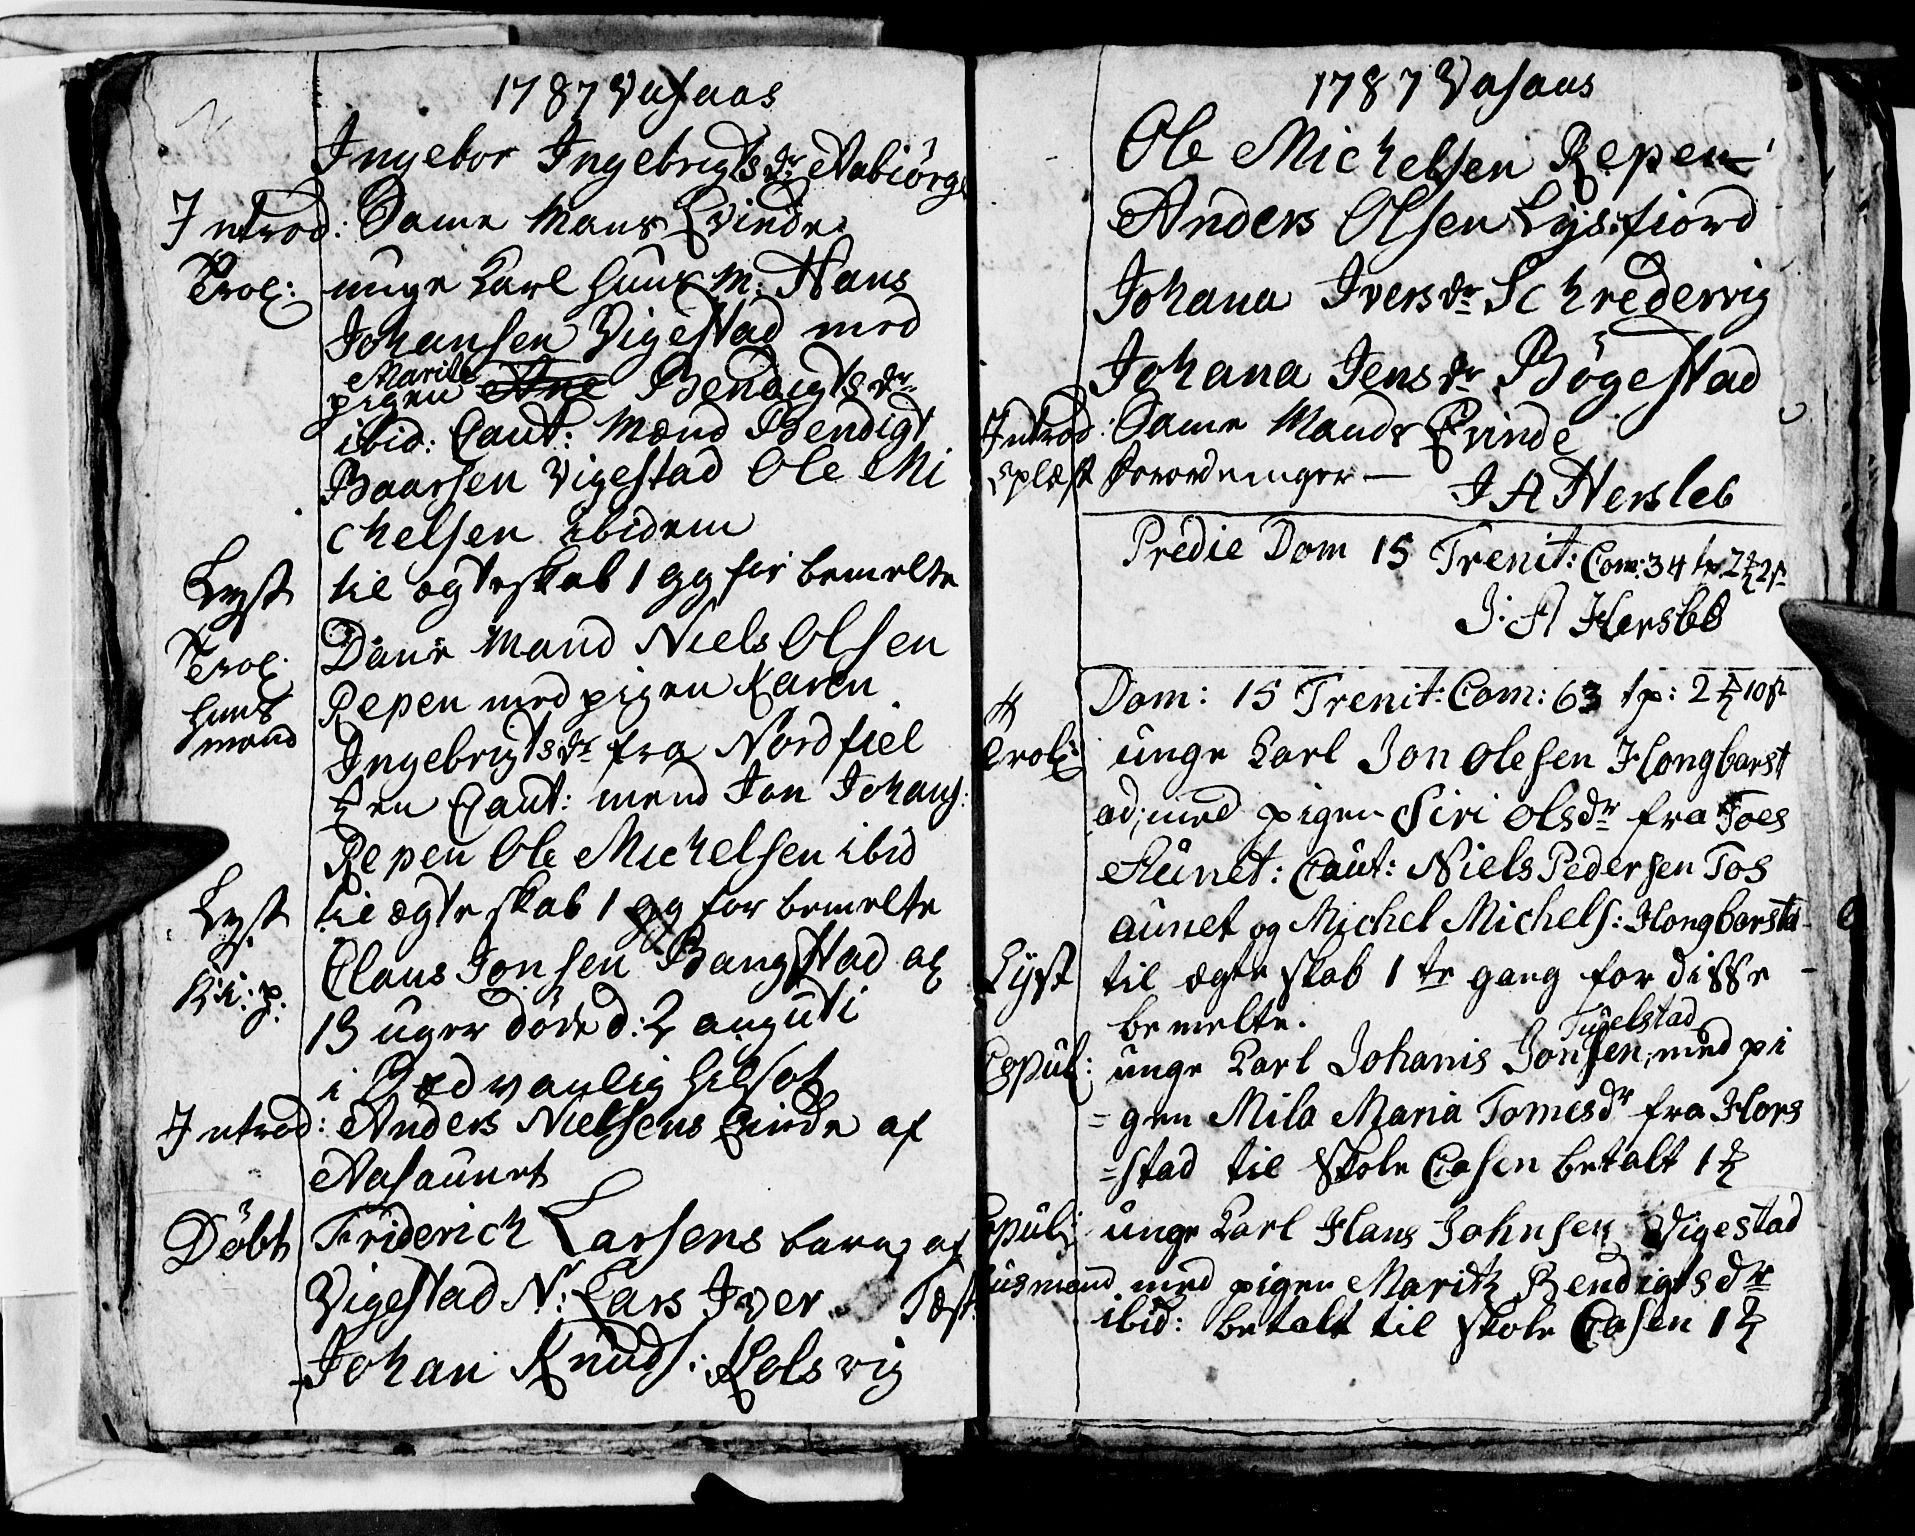 1787 Vasaas
Ingebor Ingebrigts dr Aabiörge
Introd: Same Mans Qvinde
Trol: unge Karl huus M: Hans
Johansen Vigestad med
Marite
pigen Ane Bendigts dr
ibid: Caut: Mænd Bendigt
Baarsen Vigestad Ole Mi
chelsen ibidem
Lyst til ægteskab 1 gg for bemelte
Trol: Dane Mand Niels Olsen
huus Repen med pigen Karen
mand Ingebrigts dr fra Nordfiel
en Caut: mend Jon Johans:
Repen Ole Michelsen ibid
Lyst til ægteskab 1 gg for bemelte
Claus Jonsen Bangstad
13 uger döde d: 2 augusti
i Sædvanlig
Introd: Anders Nielsens Qinde af
Aasaunet
Döbt Friderich Larsens barn af
Vigestad N: Lars Iver Fæst:
Johan Knuds: Kolsvig
1787 Vasaas
Ole Michelsen Repen
Anders Olsen Lysfiord
Johana Ivers dr Schredervig
Johana Jens dr Bögestad
Introd: Same Mands Qvinde
oplæst Forordninger —
J A Hersleb
Predie Dom 15 Trenit: Com: 34 tp 2 2
J: A Hersleb
Dom: 15 Trenit: Com: 63 tp: 2 10
Trol: unge Karl Jon Olesen Hongbarst
ad; med pigen Siri Olsdr fra Toes
Aunet: Caut: Niels Pedersen Tos
aunet og Michel Michels: Hongbarsta
Lyst til ægteskab 1 te gang for disse
bemelte.
Tugelstad
Copul: unge Karl Johanis Jonsen, med pi
= gen Mila Maria Tomesdr fra Hors
= stad til Skole Casen betalt 1
Copul: unge Karl Hans Johnsen Vigestad
Husmand med pigen Marith Bendigts dr
ibid: betalt til Skole Casen 1